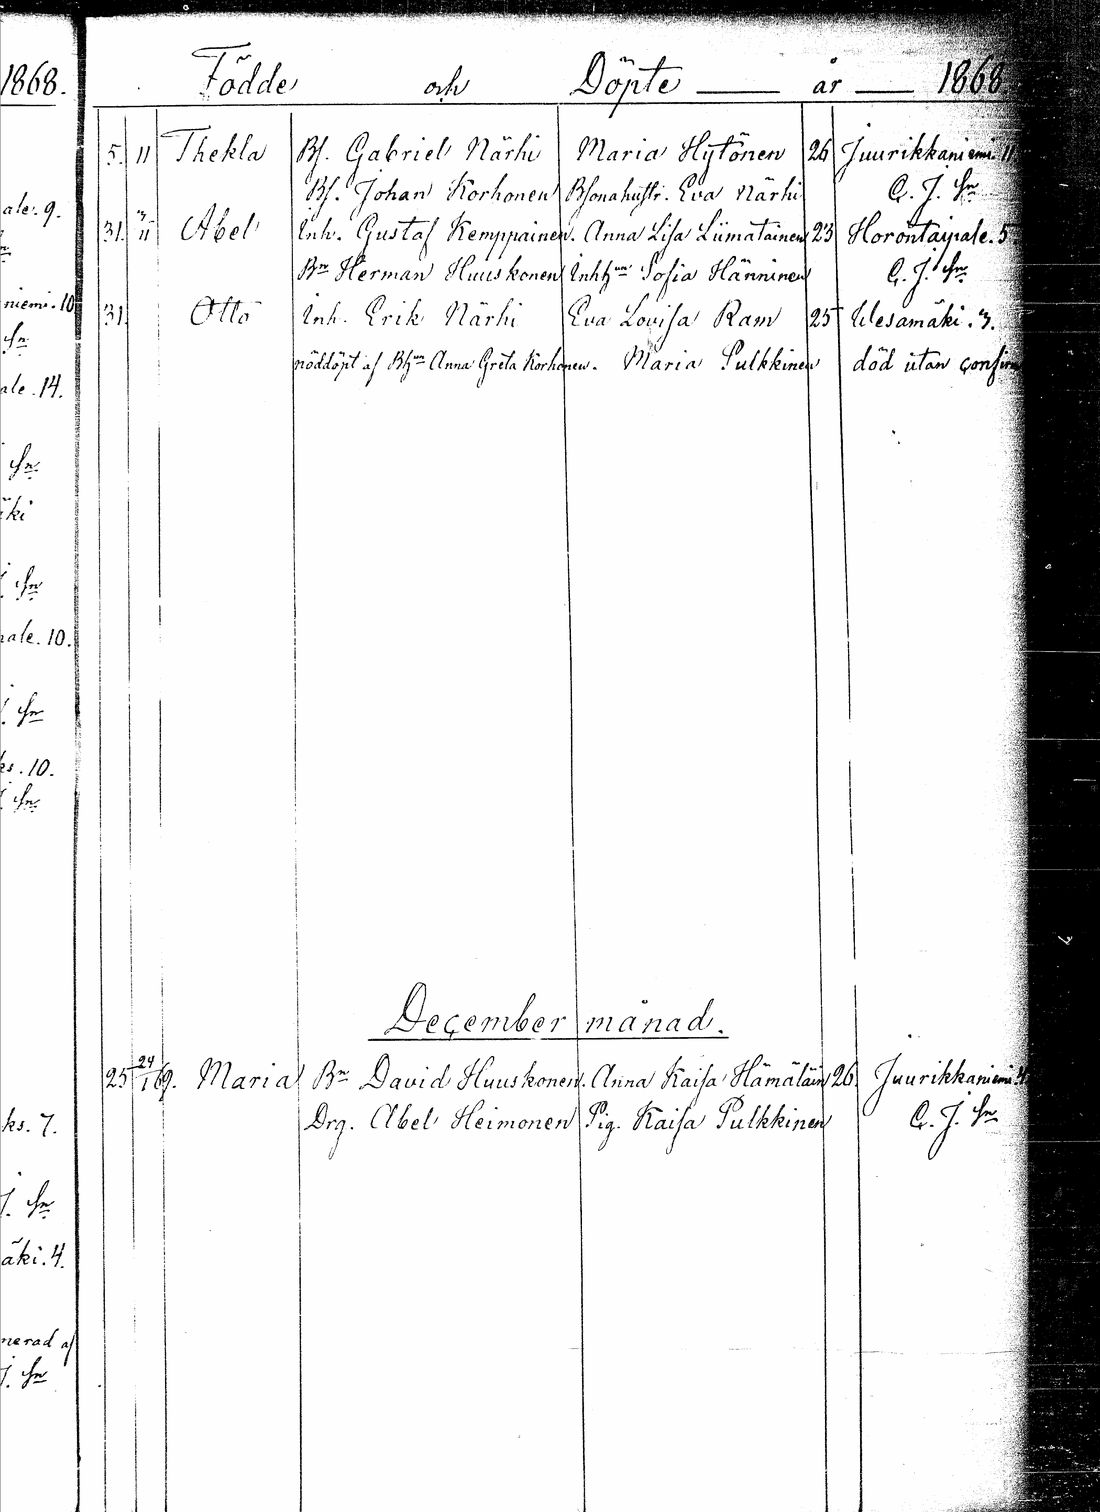 1868.
ale. 9.
niemi. 10
ale. 14.
äki
ale. 10.
ks. 10.
ks. 7.
äki. 4.
nerad af
Födde och Döpte år 1868
5. 11 Thekla Bs. Gabriel Närhi Maria Hytönen 26 Juurikkaniemi. 11
Bs. Johan Korhonen Bsonahustr. Eva Närhi C. J. Sn
31. Abel Inh. Gustaf Kemppainen. Anna Lisa Liimatainen 23 Horontaipale. 5
Bn Herman Huuskonen Sofia Hänninen C. J. Sn
31. Otto Inh. Erik Närhi Eva Lovisa Ram 25 Wesamäki. 3.
nöddöpt af Anna Greta Korhonen. Maria Pulkkinen död utan confirm
December månad.
25 24/1 69. Maria Bn David Huuskonen. Anna Kaisa Hämäläin 26 Juurikkaniemi
Drg. Abel Heimonen Pig. Kaisa Pulkkinen C. J. Sn